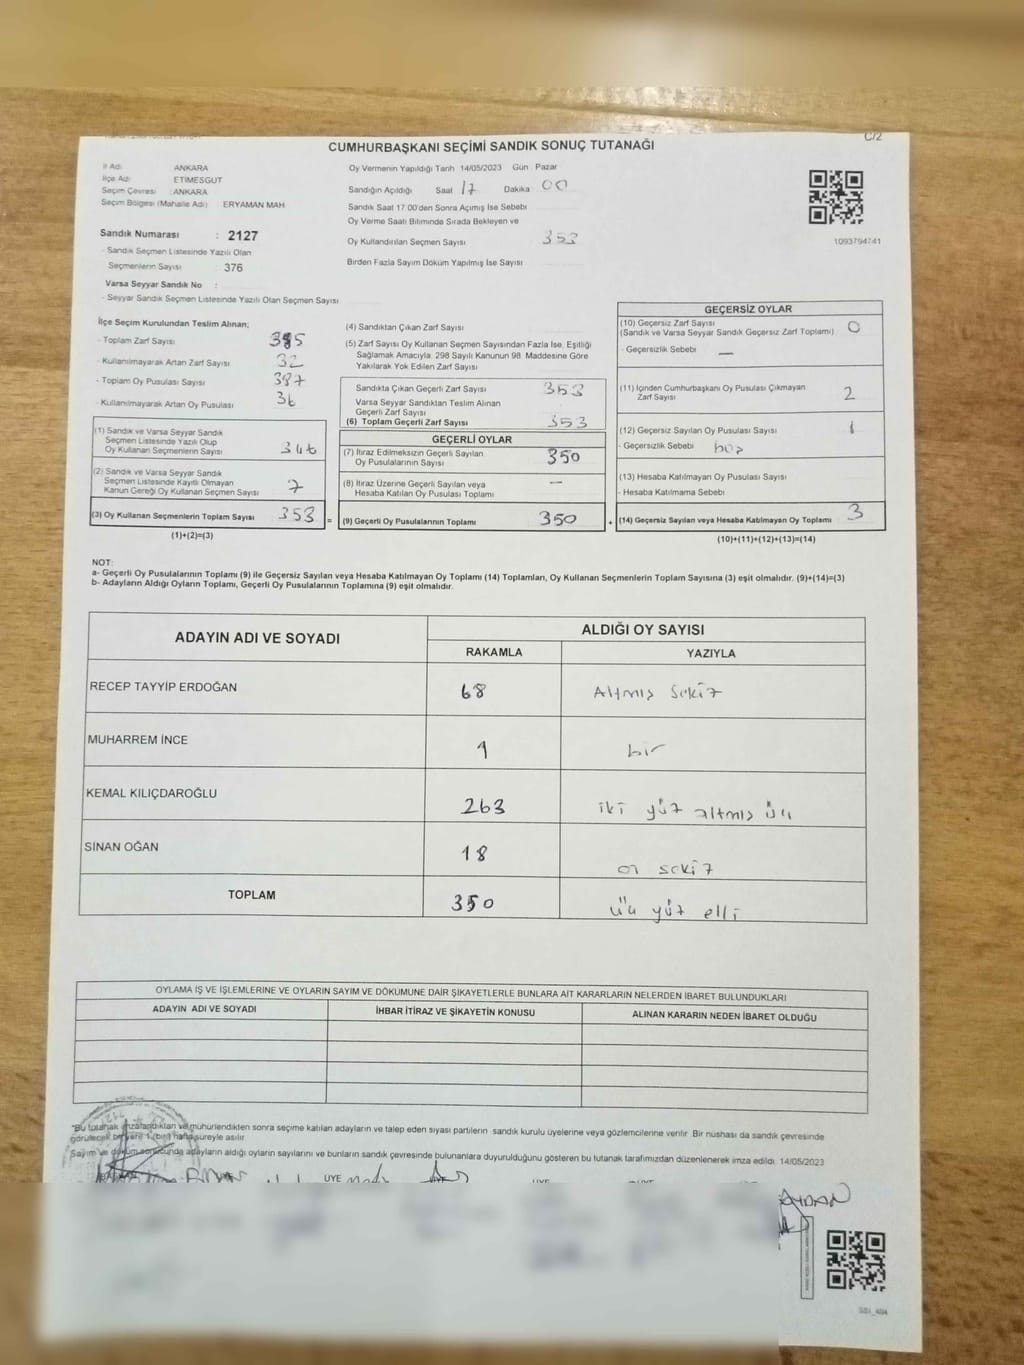 C/2
CUMHURBAŞKANI SEÇİMİ SANDIK SONUÇ TUTANAĞI
İl Adı ANKARA
İlçe Adı : ETİMESGUT
Seçim Çevresi : ANKARA
Seçim Bölgesi (Mahalle Adı) ERYAMAN MAH
Sandık Numarası : 2127
- Sandık Seçmen Listesinde Yazılı Olan
Seçmenlerin Sayısı : 376
Varsa Seyyar Sandık No :
- Seyyar Sandık Seçmen Listesinde Yazılı Olan Seçmen Sayısı
Oy Vermenin Yapıldığı Tarih 14/05/2023 Gün Pazar
Sandığın Açıldığı Saat 17 Dakika 00
Sandık Saat 17:00'den Sonra Açımış İse Sebebi
Oy Verme Saati Bitiminde Sırada Bekleyen ve
Oy Kullandırılan Seçmen Sayısı 353
Birden Fazla Sayım Döküm Yapılmış İse Sayısı
1093794741
İlçe Seçim Kurulundan Teslim Alınan;
- Toplam Zarf Sayısı 385
- Kullanılmayarak Artan Zarf Sayısı 32
- Toplam Oy Pusulası Sayısı 387
- Kullanılmayarak Artan Oy Pusulası 36
(1) Sandık ve Varsa Seyyar Sandık
Seçmen Listesinde Yazılı Olup
Oy Kullanan Seçmenlerin Sayısı 346
(2) Sandık ve Varsa Seyyar Sandık
Seçmen Listesinde Kayıtlı Olmayan
Kanun Gereği Oy Kullanan Seçmen Sayısı 7
(3) Oy Kullanan Seçmenlerin Toplam Sayısı 353 =
(1)+(2)=(3)
(4) Sandıktan Çıkan Zarf Sayısı
(5) Zarf Sayısı Oy Kullanan Seçmen Sayısından Fazla İse, Eşitliği
Sağlamak Amacıyla, 298 Sayılı Kanunun 98. Maddesine Göre
Yakılarak Yok Edilen Zarf Sayısı
Sandıkta Çıkan Geçerli Zarf Sayısı 353
Varsa Seyyar Sandıktan Teslim Alınan
Geçerli Zarf Sayısı
(6) Toplam Geçerli Zarf Sayısı 353
GEÇERLİ OYLAR
(7) İtiraz Edilmeksizin Geçerli Sayılan
Oy Pusulalarının Sayısı 350
(8) İtiraz Üzerine Geçerli Sayılan veya
Hesaba Katılan Oy Pusulası Toplamı —
(9) Geçerli Oy Pusulalarının Toplamı 350 +
GEÇERSİZ OYLAR
(10) Geçersiz Zarf Sayısı 0
(Sandık ve Varsa Seyyar Sandık Geçersiz Zarf Toplamı)
- Geçersizlik Sebebi —
(11) İçinden Cumhurbaşkanı Oy Pusulası Çıkmayan
Zarf Sayısı 2
(12) Geçersiz Sayılan Oy Pusulası Sayısı 1
- Geçersizlik Sebebi boş
(13) Hesaba Katılmayan Oy Pusulası Sayısı
- Hesaba Katılmama Sebebi
(14) Geçersiz Sayılan veya Hesaba Katılmayan Oy Toplamı 3
(10)+(11)+(12)+(13)=(14)
NOT:
a- Geçerli Oy Pusulalarının Toplamı (9) ile Geçersiz Sayılan veya Hesaba Katılmayan Oy Toplamı (14) Toplamları, Oy Kullanan Seçmenlerin Toplam Sayısına (3) eşit olmalıdır. (9)+(14)=(3)
b- Adayların Aldığı Oyların Toplamı, Geçerli Oy Pusulalarının Toplamına (9) eşit olmalıdır.
ADAYIN ADI VE SOYADI ALDIĞI OY SAYISI
RAKAMLA YAZIYLA
RECEP TAYYİP ERDOĞAN 68 Altmış sekiz
MUHARREM İNCE 1 bir
KEMAL KILIÇDAROĞLU 263 iki yüz altmış üç
SİNAN OĞAN 18 on sekiz
TOPLAM 350 üç yüz elli
OYLAMA İŞ VE İŞLEMLERİNE VE OYLARIN SAYIM VE DÖKÜMÜNE DAİR ŞİKAYETLERLE BUNLARA AİT KARARLARIN NELERDEN İBARET BULUNDUKLARI
ADAYIN ADI VE SOYADI İHBAR İTİRAZ VE ŞİKAYETİN KONUSU ALINAN KARARIN NEDEN İBARET OLDUĞU
"Bu tutanak imzalandıktan ve mühürlendikten sonra seçime katılan adayların ve talep eden siyasi partilerin sandık kurulu üyelerine veya gözlemcilerine verilir. Bir nüshası da sandık çevresinde
görülecek bir yere 1 (bir) hafta süreyle asılır.
Sayım ve döküm sonucunda adayların aldığı oyların sayılarını ve bunların sandık çevresinde bulunanlara duyurulduğunu gösteren bu tutanak tarafımızdan düzenlenerek imza edildi. 14/05/2023
ÜYE